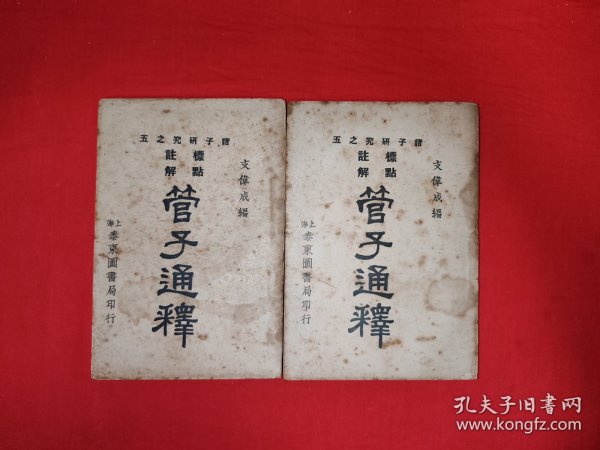 五之究研子諸
標點
註解
支偉成編
管子通釋
上海
泰東圖書局印行
五之究研子諸
標點
註解
支偉成編
管子通釋
上海
泰東圖書局印行
孔夫子旧书网
www.kongfz.com